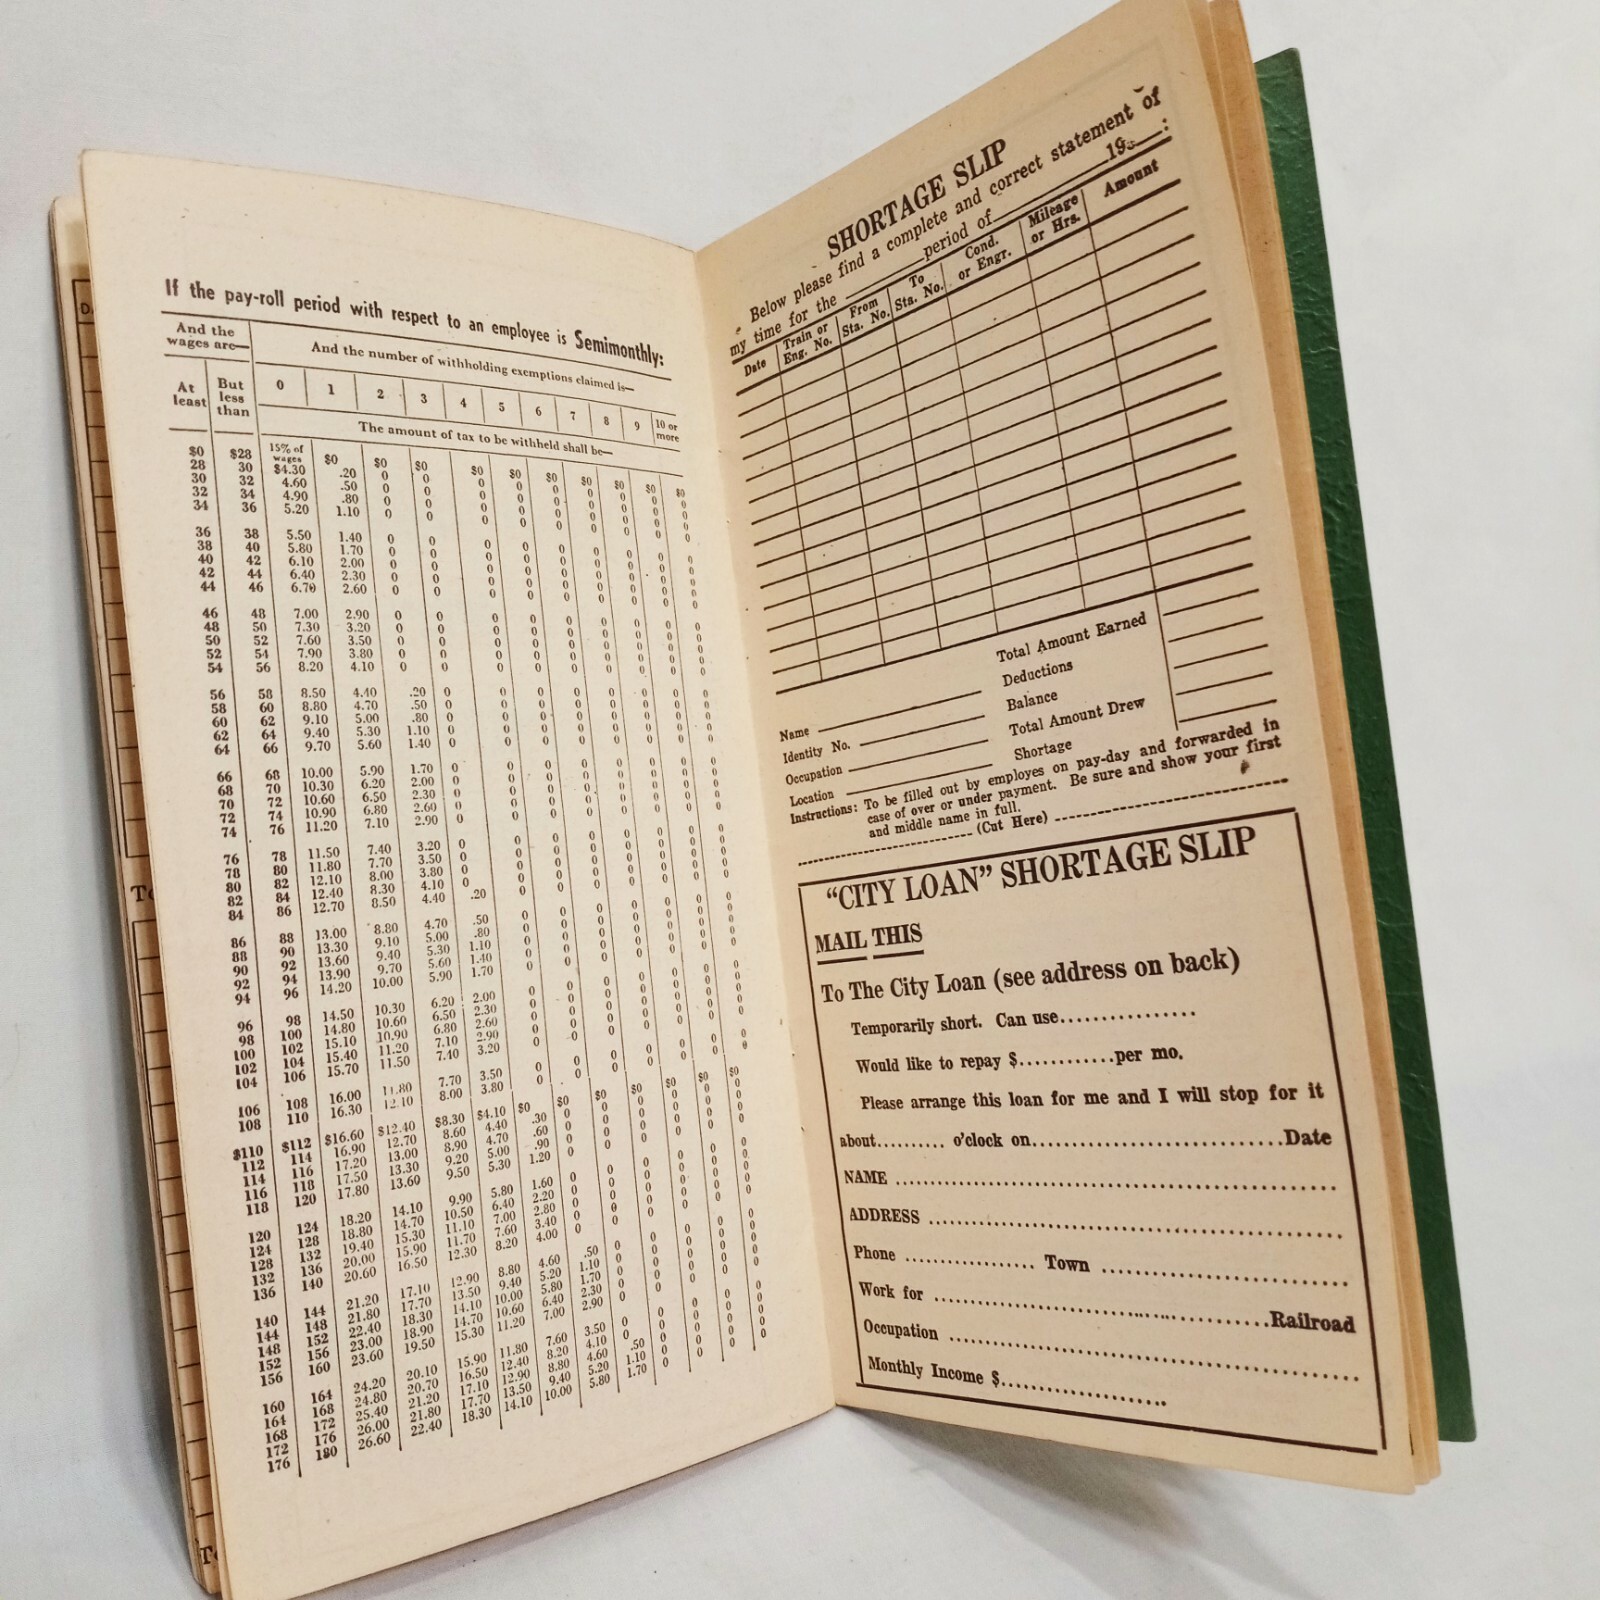 If the pay-roll period with respect to an employee is Semimonthly:
And the wages are—
And the number of withholding exemptions claimed is—
At least
But less than
0 1 2 3 4 5 6 7 8 9 10 or more
The amount of tax to be withheld shall be—
$0 $28 15% of wages $0 $0 $0 $0 $0 $0 $0 $0 $0 $0
28 30 $4.30 .20 0 0 0 0 0 0 0 0 0
30 32 4.60 .50 0 0 0 0 0 0 0 0 0
32 34 4.90 .80 0 0 0 0 0 0 0 0 0
34 36 5.20 1.10 0 0 0 0 0 0 0 0 0
36 38 5.50 1.40 0 0 0 0 0 0 0 0 0
38 40 5.80 1.70 0 0 0 0 0 0 0 0 0
40 42 6.10 2.00 0 0 0 0 0 0 0 0 0
42 44 6.40 2.30 0 0 0 0 0 0 0 0 0
44 46 6.70 2.60 0 0 0 0 0 0 0 0 0
46 48 7.00 2.90 0 0 0 0 0 0 0 0 0
48 50 7.30 3.20 0 0 0 0 0 0 0 0 0
50 52 7.60 3.50 0 0 0 0 0 0 0 0 0
52 54 7.90 3.80 0 0 0 0 0 0 0 0 0
54 56 8.20 4.10 0 0 0 0 0 0 0 0 0
56 58 8.50 4.40 .20 0 0 0 0 0 0 0 0
58 60 8.80 4.70 .50 0 0 0 0 0 0 0 0
60 62 9.10 5.00 .80 0 0 0 0 0 0 0 0
62 64 9.40 5.30 1.10 0 0 0 0 0 0 0 0
64 66 9.70 5.60 1.40 0 0 0 0 0 0 0 0
66 68 10.00 5.90 1.70 0 0 0 0 0 0 0 0
68 70 10.30 6.20 2.00 0 0 0 0 0 0 0 0
70 72 10.60 6.50 2.30 0 0 0 0 0 0 0 0
72 74 10.90 6.80 2.60 0 0 0 0 0 0 0 0
74 76 11.20 7.10 2.90 0 0 0 0 0 0 0 0
76 78 11.50 7.40 3.20 0 0 0 0 0 0 0 0
78 80 11.80 7.70 3.50 0 0 0 0 0 0 0 0
80 82 12.10 8.00 3.80 0 0 0 0 0 0 0 0
82 84 12.40 8.30 4.10 0 0 0 0 0 0 0 0
84 86 12.70 8.50 4.40 .20 0 0 0 0 0 0 0
86 88 13.00 8.80 4.70 .50 0 0 0 0 0 0 0
88 90 13.30 9.10 5.00 .80 0 0 0 0 0 0 0
90 92 13.60 9.40 5.30 1.10 0 0 0 0 0 0 0
92 94 13.90 9.70 5.60 1.40 0 0 0 0 0 0 0
94 96 14.20 10.00 5.90 1.70 0 0 0 0 0 0 0
96 98 14.50 10.30 6.20 2.00 0 0 0 0 0 0 0
98 100 14.80 10.60 6.50 2.30 0 0 0 0 0 0 0
100 102 15.10 10.90 6.80 2.60 0 0 0 0 0 0 0
102 104 15.40 11.20 7.10 2.90 0 0 0 0 0 0 0
104 106 15.70 11.50 7.40 3.20 0 0 0 0 0 0 0
106 108 16.00 11.80 7.70 3.50 0 0 0 0 0 0 0
108 110 16.30 12.10 8.00 3.80 0 0 0 0 0 0 0
$110 $112 $16.60 $12.40 $8.30 $4.10 $0 $0 $0 $0 $0 $0 $0
112 114 16.90 12.70 8.60 4.40 .30 0 0 0 0 0 0
114 116 17.20 13.00 8.90 4.70 .60 0 0 0 0 0 0
116 118 17.50 13.30 9.20 5.00 .90 0 0 0 0 0 0
118 120 17.80 13.60 9.50 5.30 1.20 0 0 0 0 0 0
120 124 18.20 14.10 9.90 5.80 1.60 0 0 0 0 0 0
124 128 18.80 14.70 10.50 6.40 2.20 0 0 0 0 0 0
128 132 19.40 15.30 11.10 7.00 2.80 0 0 0 0 0 0
132 136 20.00 15.90 11.70 7.60 3.40 0 0 0 0 0 0
136 140 20.60 16.50 12.30 8.20 4.00 0 0 0 0 0 0
140 144 21.20 17.10 12.90 8.80 4.60 .50 0 0 0 0 0
144 148 21.80 17.70 13.50 9.40 5.20 1.10 0 0 0 0 0
148 152 22.40 18.30 14.10 10.00 5.80 1.70 0 0 0 0 0
152 156 23.00 18.90 14.70 10.60 6.40 2.30 0 0 0 0 0
156 160 23.60 19.50 15.30 11.20 7.00 2.90 0 0 0 0 0
160 164 24.20 20.10 15.90 11.80 7.60 3.50 0 0 0 0 0
164 168 24.80 20.70 16.50 12.40 8.20 4.10 0 0 0 0 0
168 172 25.40 21.20 17.10 12.90 8.80 4.60 .50 0 0 0 0
172 176 26.00 21.80 17.70 13.50 9.40 5.20 1.10 0 0 0 0
176 180 26.60 22.40 18.30 14.10 10.00 5.80 1.70 0 0 0 0
SHORTAGE SLIP
Below please find a complete and correct statement of
my time for the ______ period of ______ 19__:
Date
Train or Eng. No.
From Sta. No.
To Sta. No.
Cond. or Engr.
Mileage or Hrs.
Amount
Total Amount Earned
Deductions
Balance
Total Amount Drew
Shortage
Name
Identity No.
Occupation
Location
Instructions: To be filled out by employes on pay-day and forwarded in
case of over or under payment. Be sure and show your first
and middle name in full.
(Cut Here)
"CITY LOAN" SHORTAGE SLIP
MAIL THIS
To The City Loan (see address on back)
Temporarily short. Can use...............
Would like to repay $............per mo.
Please arrange this loan for me and I will stop for it
about.......... o'clock on............................Date
NAME
ADDRESS
Phone ................ Town
Work for ....................................Railroad
Occupation
Monthly Income $..................